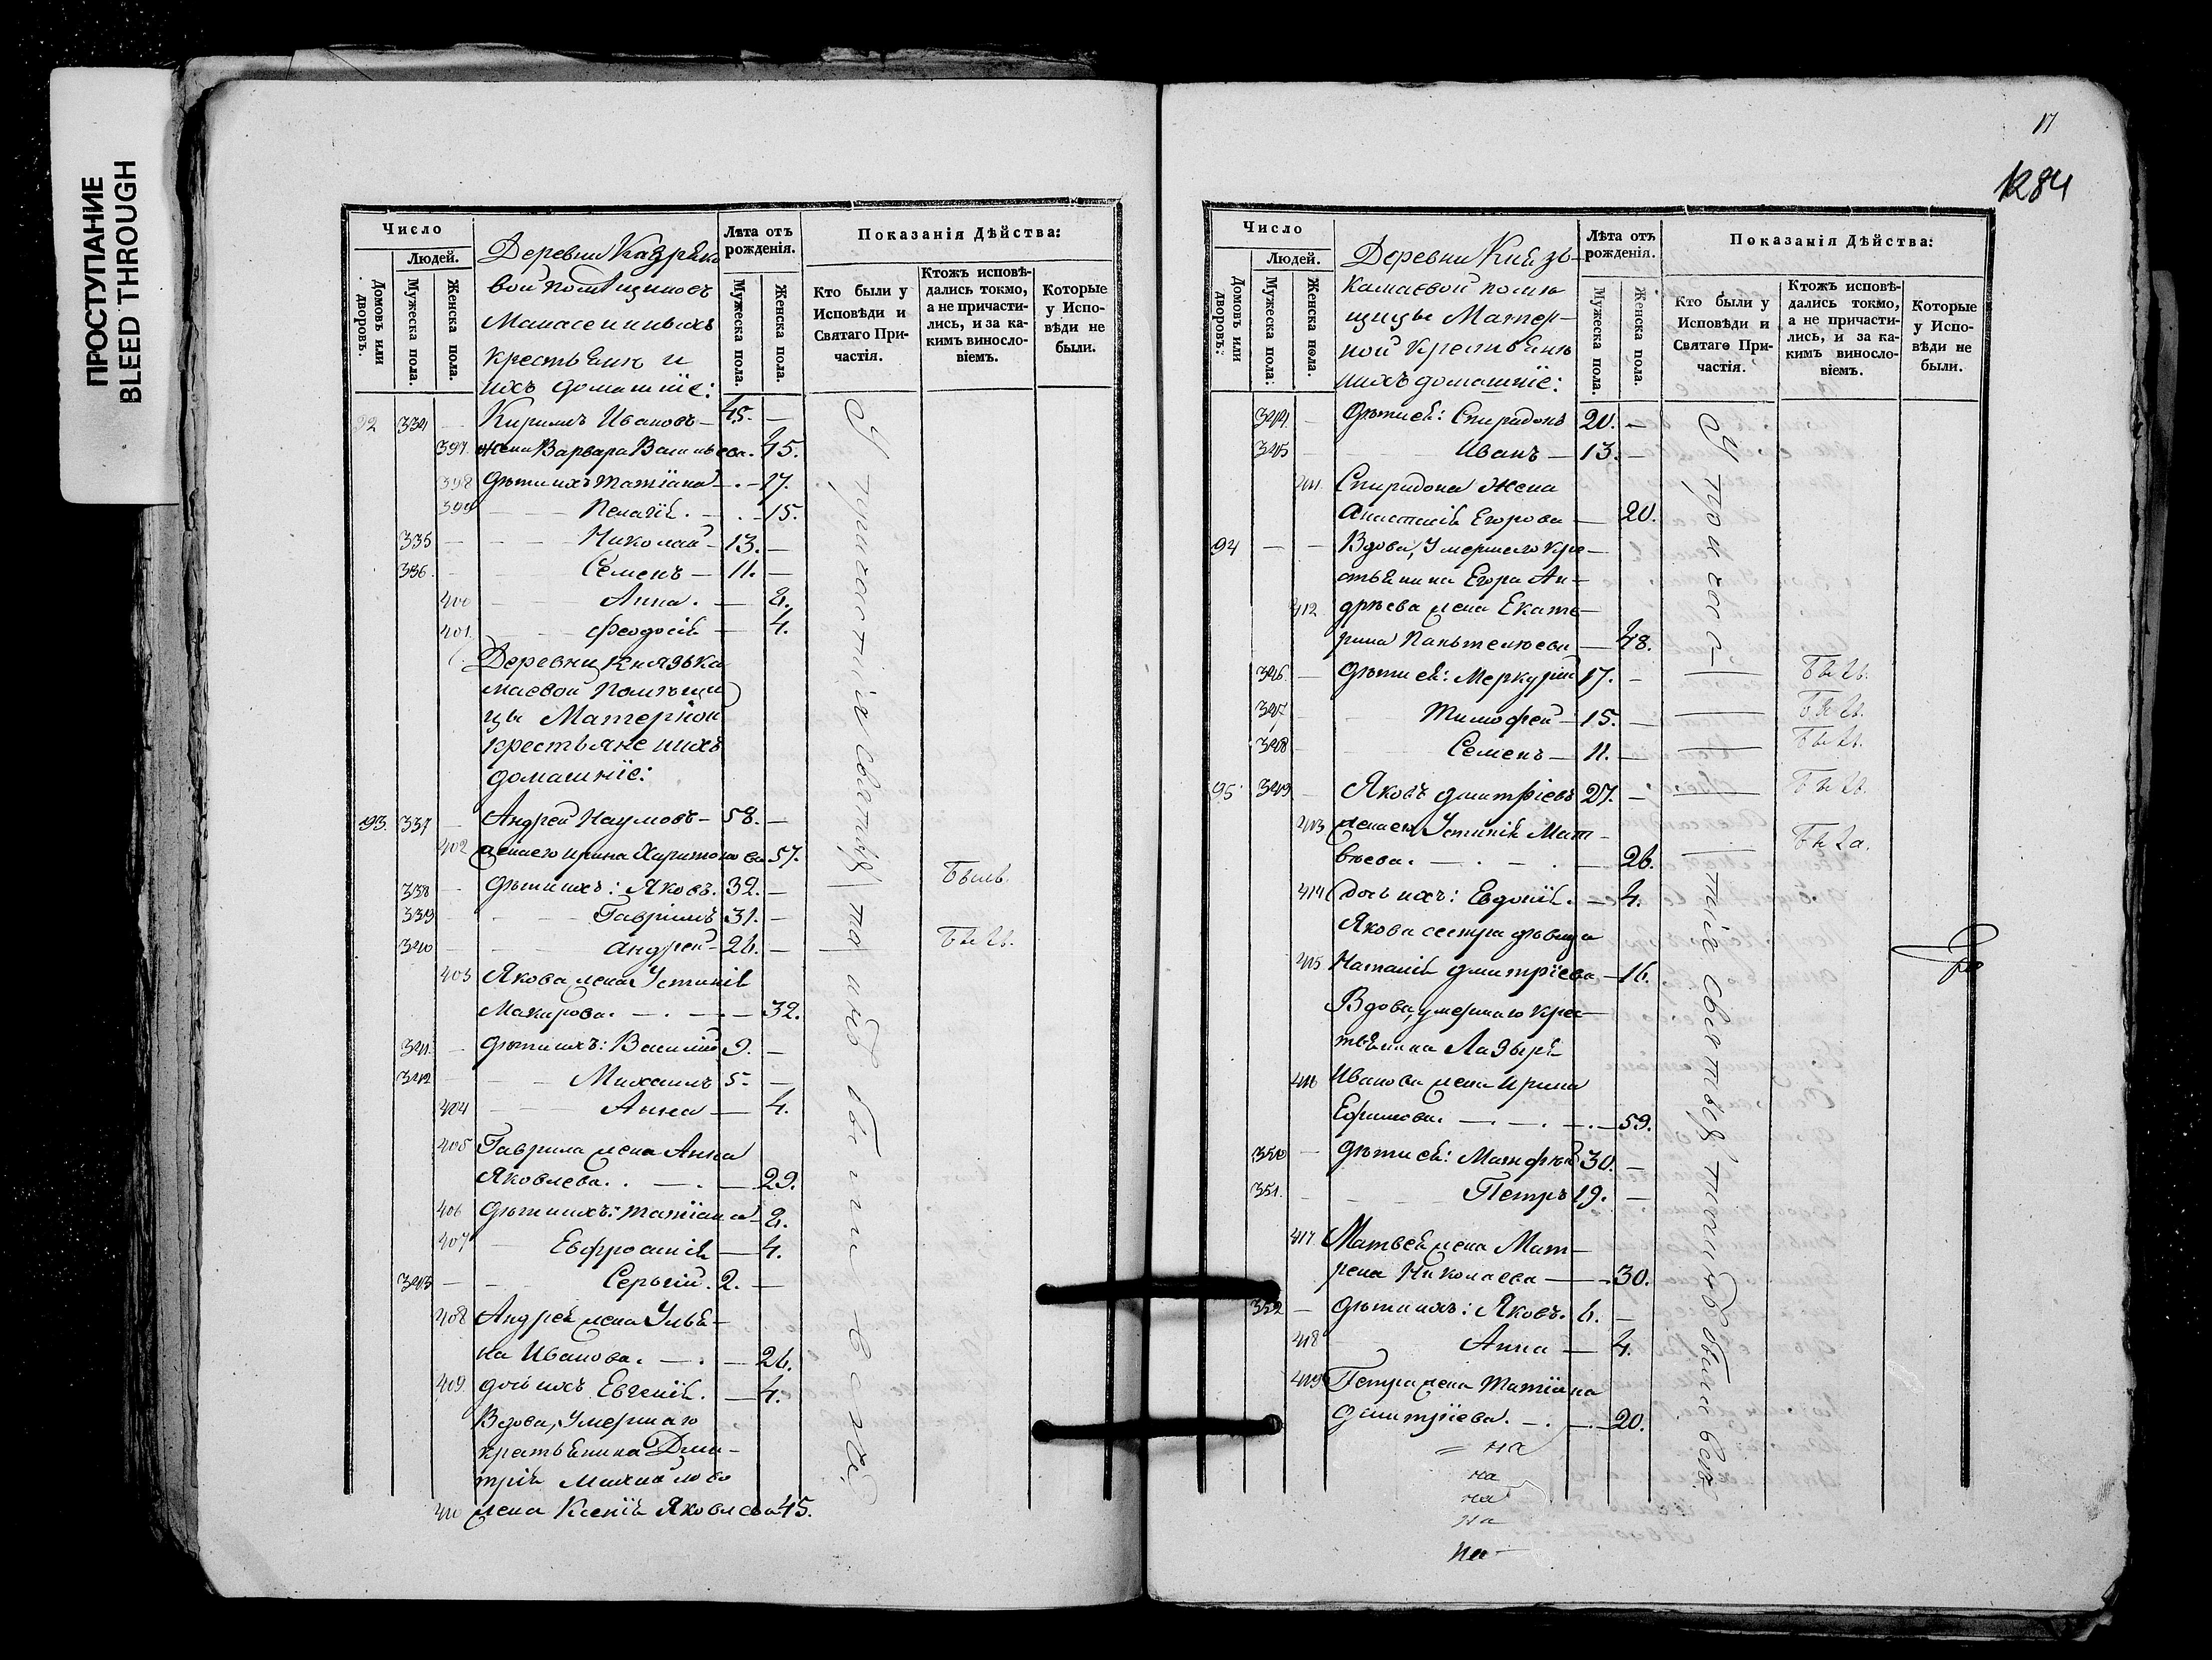 ПРОСТУПАНИЕ
BLEED THROUGH
Число
Людей.
Домовъ или дворовъ.
Мужеска пола.
Женска пола.
Деревни
вой помѣщиковъ
крестьяне и
ихъ домашніе:
Лѣта отъ рожденія.
Мужеска пола.
Женска пола.
Показанія Дѣйства:
Кто были у Исповѣди и Святаго Причастія.
Ктожъ исповѣдались токмо, а не причастились, и за какимъ винословіемъ.
Которые у Исповѣди не были.
92 334 Кирилъ Ивановъ — 45. —
397. жена Варвара Васильева. 45.
398 дѣти ихъ Татіана — . — 17.
399 — — Пелагія. — . — 15.
335 — — — Николай — 13. —
336. — — Семенъ — 11. —
400 — — Анна. — 8.
401. — Феодосія — 4.
Деревни Князька
маевой Помѣщи
цы Матерной
крестьяне и ихъ
домашніе:
93. 337 — Андрей Наумовъ — 58. —
402 жена его Ирина Харитонова 57.
338 — дѣти ихъ: Яковъ. 32. — Былъ.
339 — — — Гаврилъ 31. —
340 — — — Андрей — 26. — Былъ.
403 Якова жена Устинія
Макарова. — . — . — 32.
341. — дѣти ихъ: Василій 9. —
342 — — — Михаилъ 5. —
404 — — Анна — 4.
405 Гаврила жена Анна
Яковлева. . — . — 29.
406 дѣти ихъ: Татіана — 8.
407 — Евфросинія — 4.
343 — — Сергій. 2. —
408 Андрея жена Улья-
на Иванова. — . — 26.
409. дочь ихъ Евгенія. — 4.
Вдова, умершаго
крестьянина Дми-
трія Михайлова
410 жена Ксенія Яковлева 45.
У причастія святыя та инѣ были всѣ.
17
1284
Число
Людей.
Домовъ или дворовъ:
Мужеска пола:
Женска пола.
Деревни Князь-
камаевой помѣ
щицы Матер-
ной Крестьяне
и ихъ домашніе:
Лѣта отъ рожденія.
Мужеска пола.
Женска пола.
Показанія Дѣйства:
Кто были у Исповѣди и Святаго Причастія.
Ктожъ исповѣдались токмо, а не причастились, и за какимъ винословіемъ.
Которые у Исповѣди не были.
344. дѣти ей: Спиридонъ 20. —
345 — Иванъ — 13. —
411. Спиридона жена
Анастасія Егорова — 20.
94 — — Вдова, умершаго кре-
стьянина Егора Ан-
412. дрѣева жена Екате-
рина Пантелѣева — 48.
346. — дѣти ей: Меркурій 17. — Былъ.
347 — Тимофей — 15. — Былъ.
348 — Семенъ — 11. — Былъ.
95. 349 — Яковъ Дмитріевъ 27. — Былъ.
413 жена его Устинія Мат-
вѣева. — . — . — 26. Была.
414 дочь ихъ: Евдокія. — 4.
Якова сестра дѣвица
415 Наталія Дмитріева — 16.
Вдова, умершаго крес-
тьянина Лазыря
416 Иванова жена Ирина
Ефимова. — . — . — . — 59.
350 — дѣти ей: Матфѣй 30. —
351. — — Петръ 19. —
417. Матвея жена Мат-
рена Николаева — — 30.
352 — дѣти ихъ: Яковъ. 6. —
418 — Анна — 4.
419 Петра жена Татіана
Дмитріева. — . — . — 20.
У причас-
тія святыя были всѣ.
= на
на
на
на
на